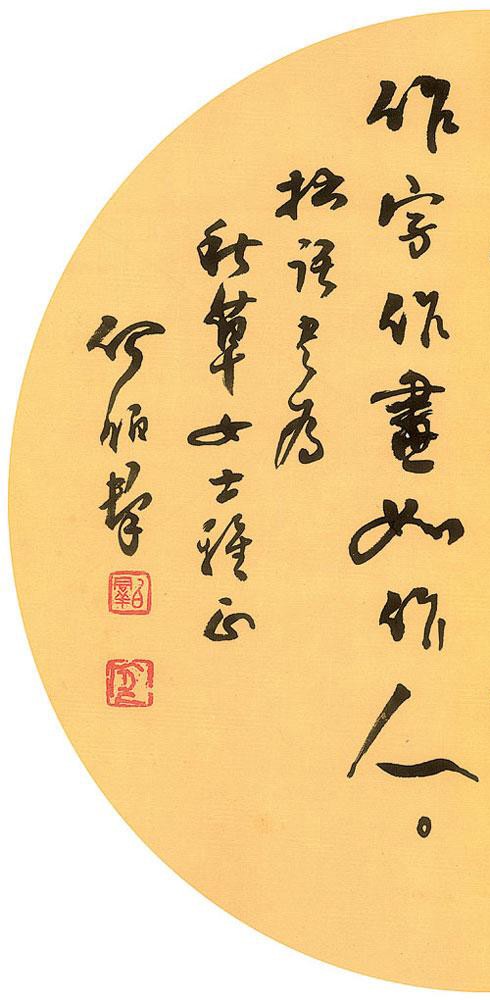 作字作畫如作人。
拙語書為
秋草女士雅正
何伯羣